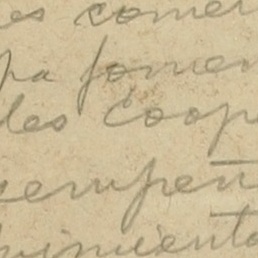 es comer
pa fomen
les Coop
sempeñ
imiento